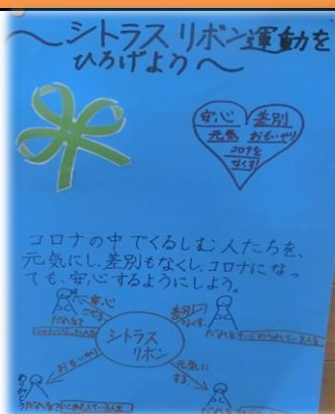 ～シトラスリボン運動を
ひろげよう～
安心
差別
元気 おもいやり
コロナを
なくす
コロナの中でくるしむ人たちを、
元気にし、差別もなくし、コロナになっ
ても、安心するようにしよう。
安心
させる
差別
なくす
シトラス
リボン
おもいやり
元気に
する